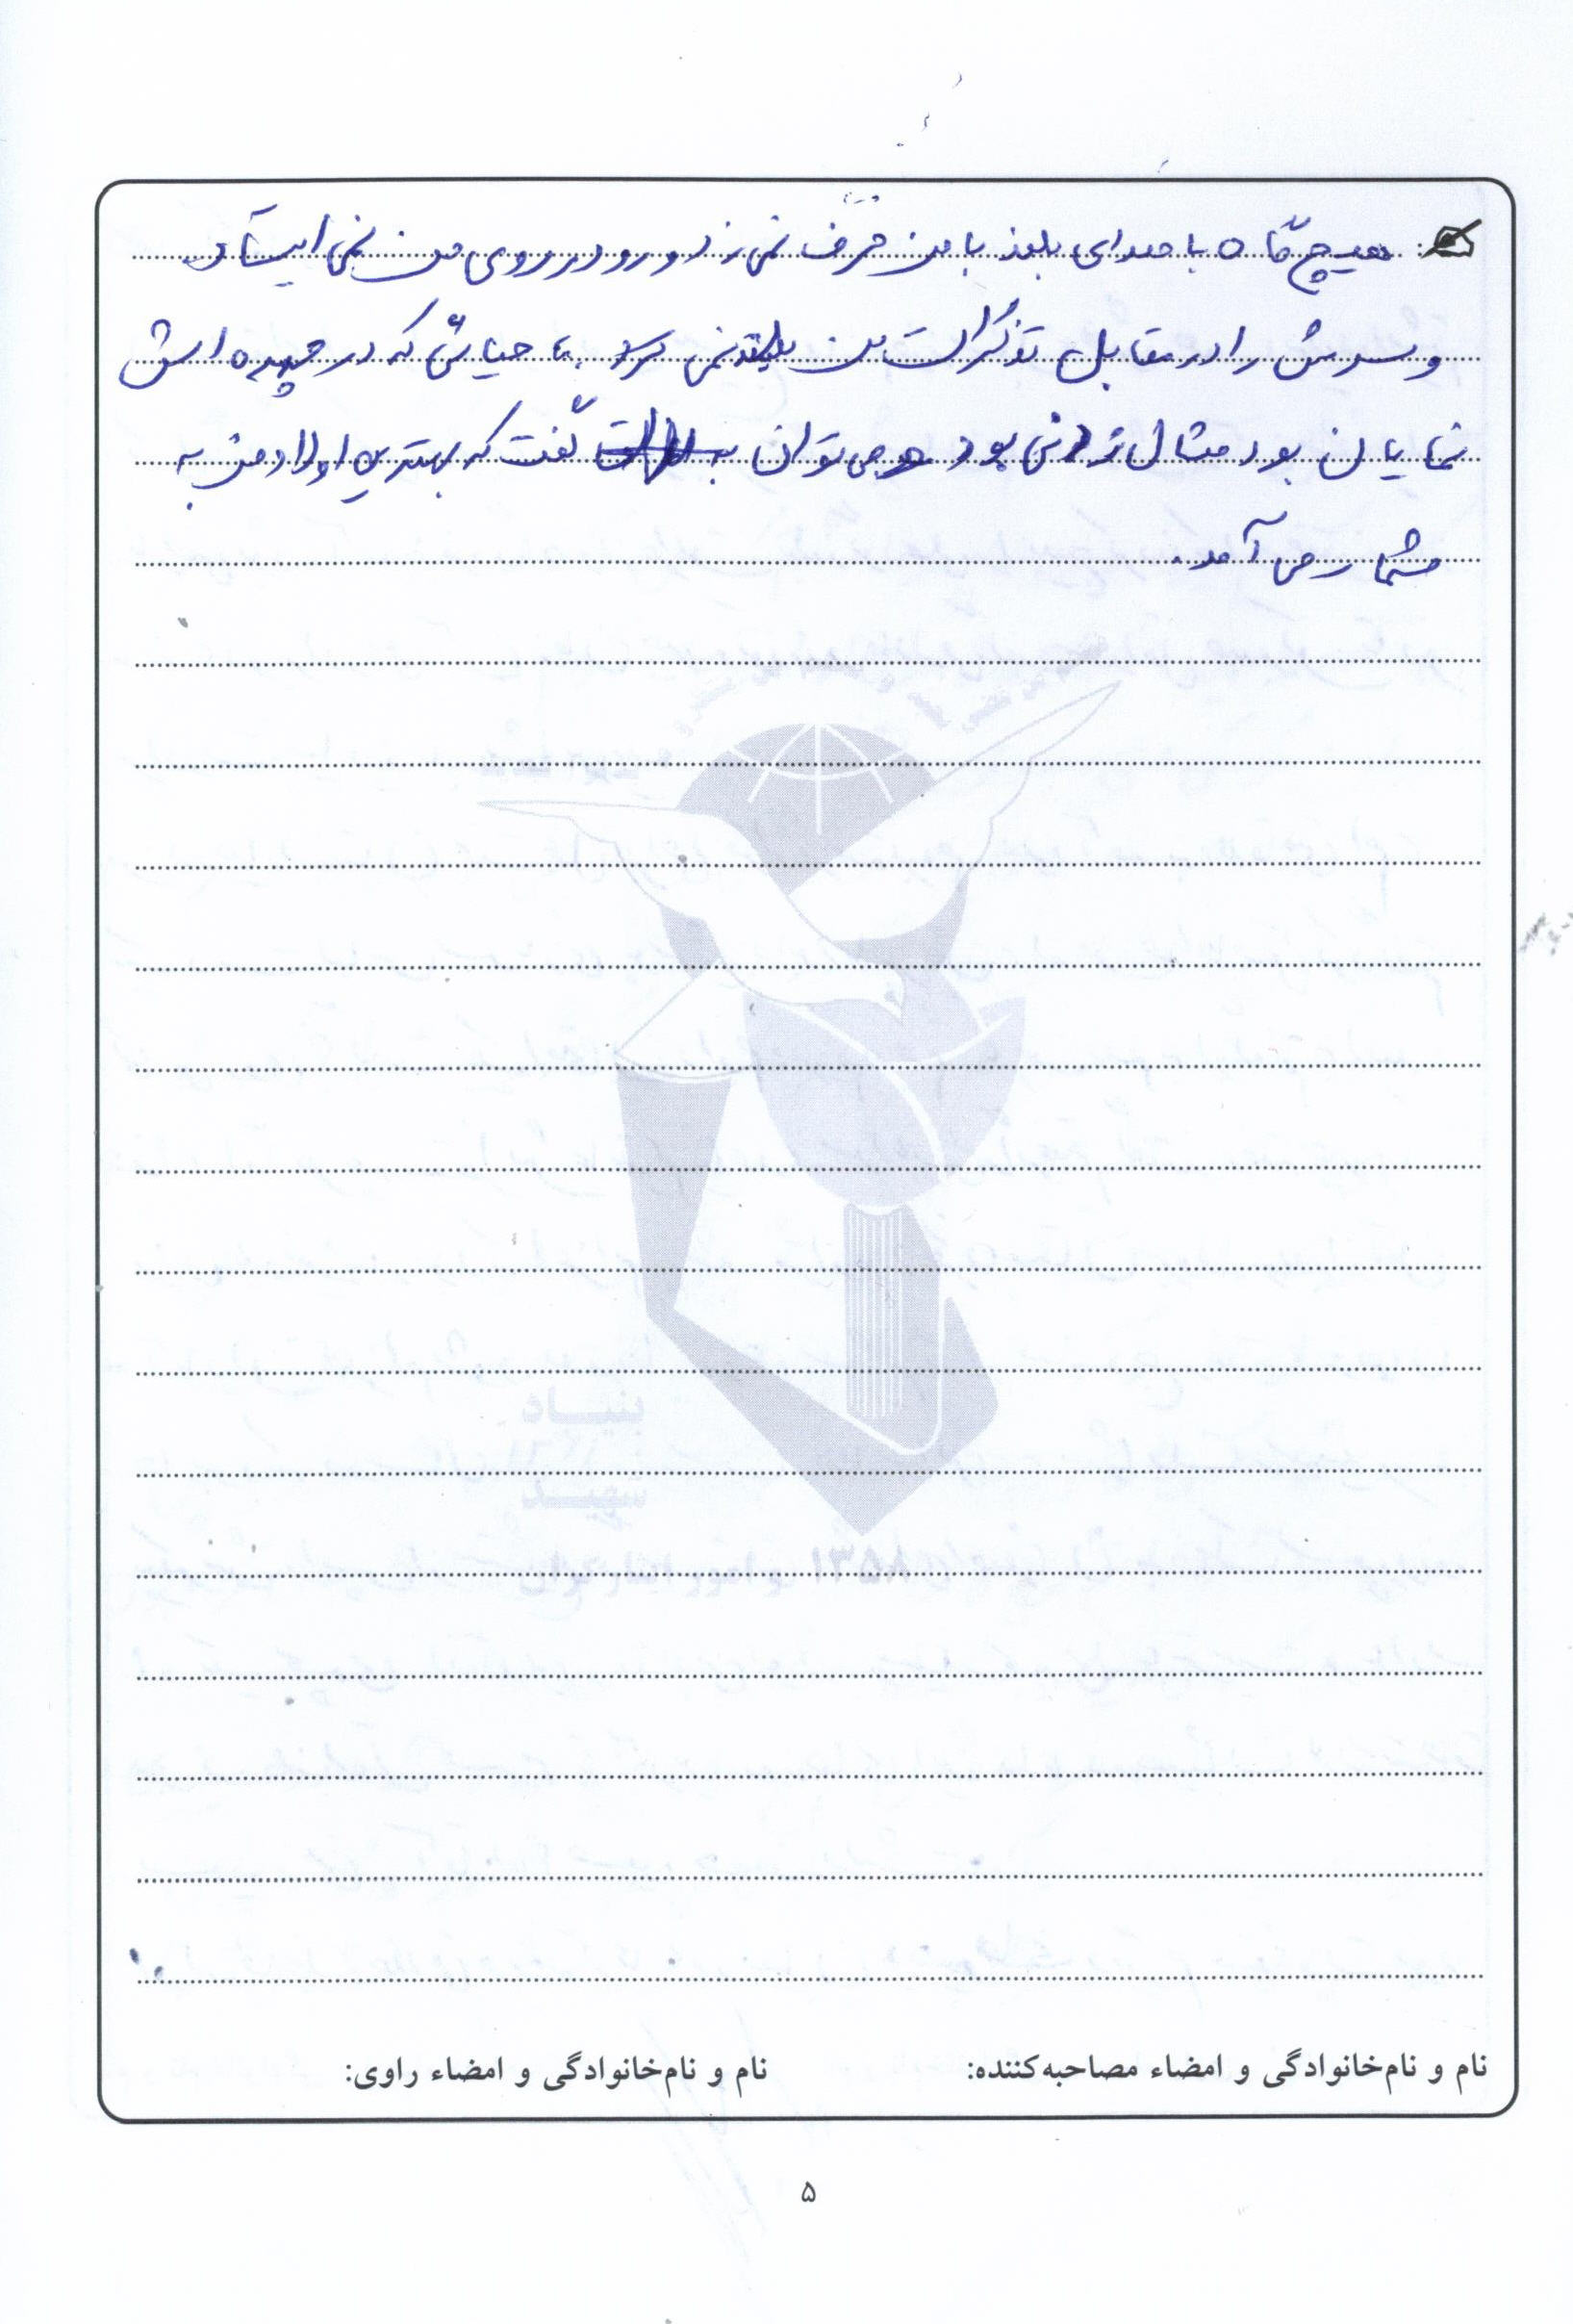 هیچگاه با صدای بلند با من حرف نمی زد و رو در روی من نمی ایستاد
و سرش را در مقابل تذکرات من بلند نمی کرد، حیائی که در چهره اش
نمایان بود مثال زدنی بود و می توان گفت که بهترین اولاد من به
شمار می آمد.
بنیاد
شهید
و امور ایثارگران ۱۳۵۸
نام و نام‌خانوادگی و امضاء مصاحبه‌کننده: نام و نام‌خانوادگی و امضاء راوی:
۵